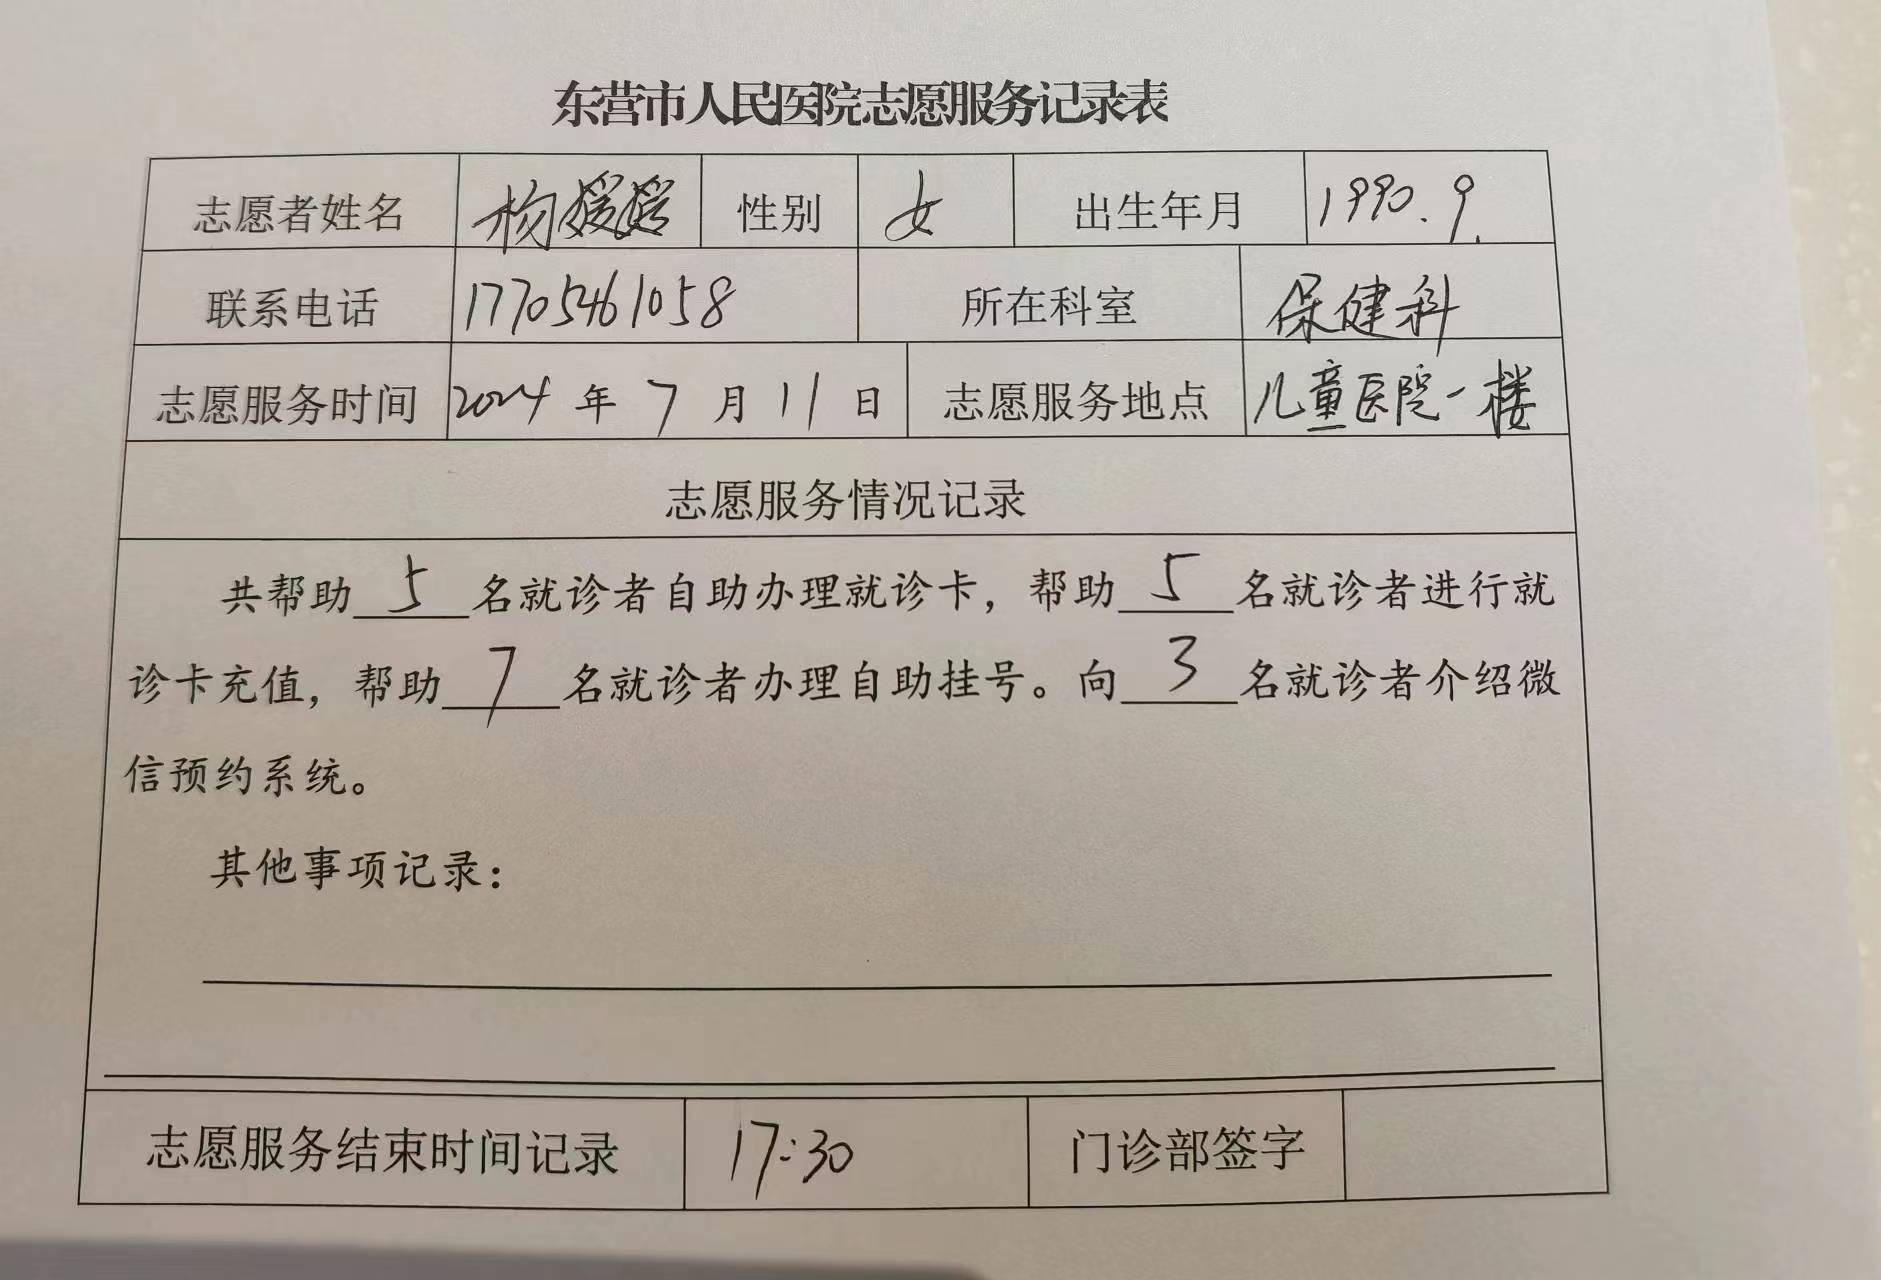 东营市人民医院志愿服务记录表
志愿者姓名 杨媛媛 性别 女 出生年月 1990.9.
联系电话 17705461058 所在科室 保健科
志愿服务时间 2024 年 7 月 11 日 志愿服务地点 儿童医院一楼
志愿服务情况记录
共帮助 5 名就诊者自助办理就诊卡，帮助 5 名就诊者进行就
诊卡充值，帮助 7 名就诊者办理自助挂号。向 3 名就诊者介绍微
信预约系统。
其他事项记录：
志愿服务结束时间记录 17:30 门诊部签字